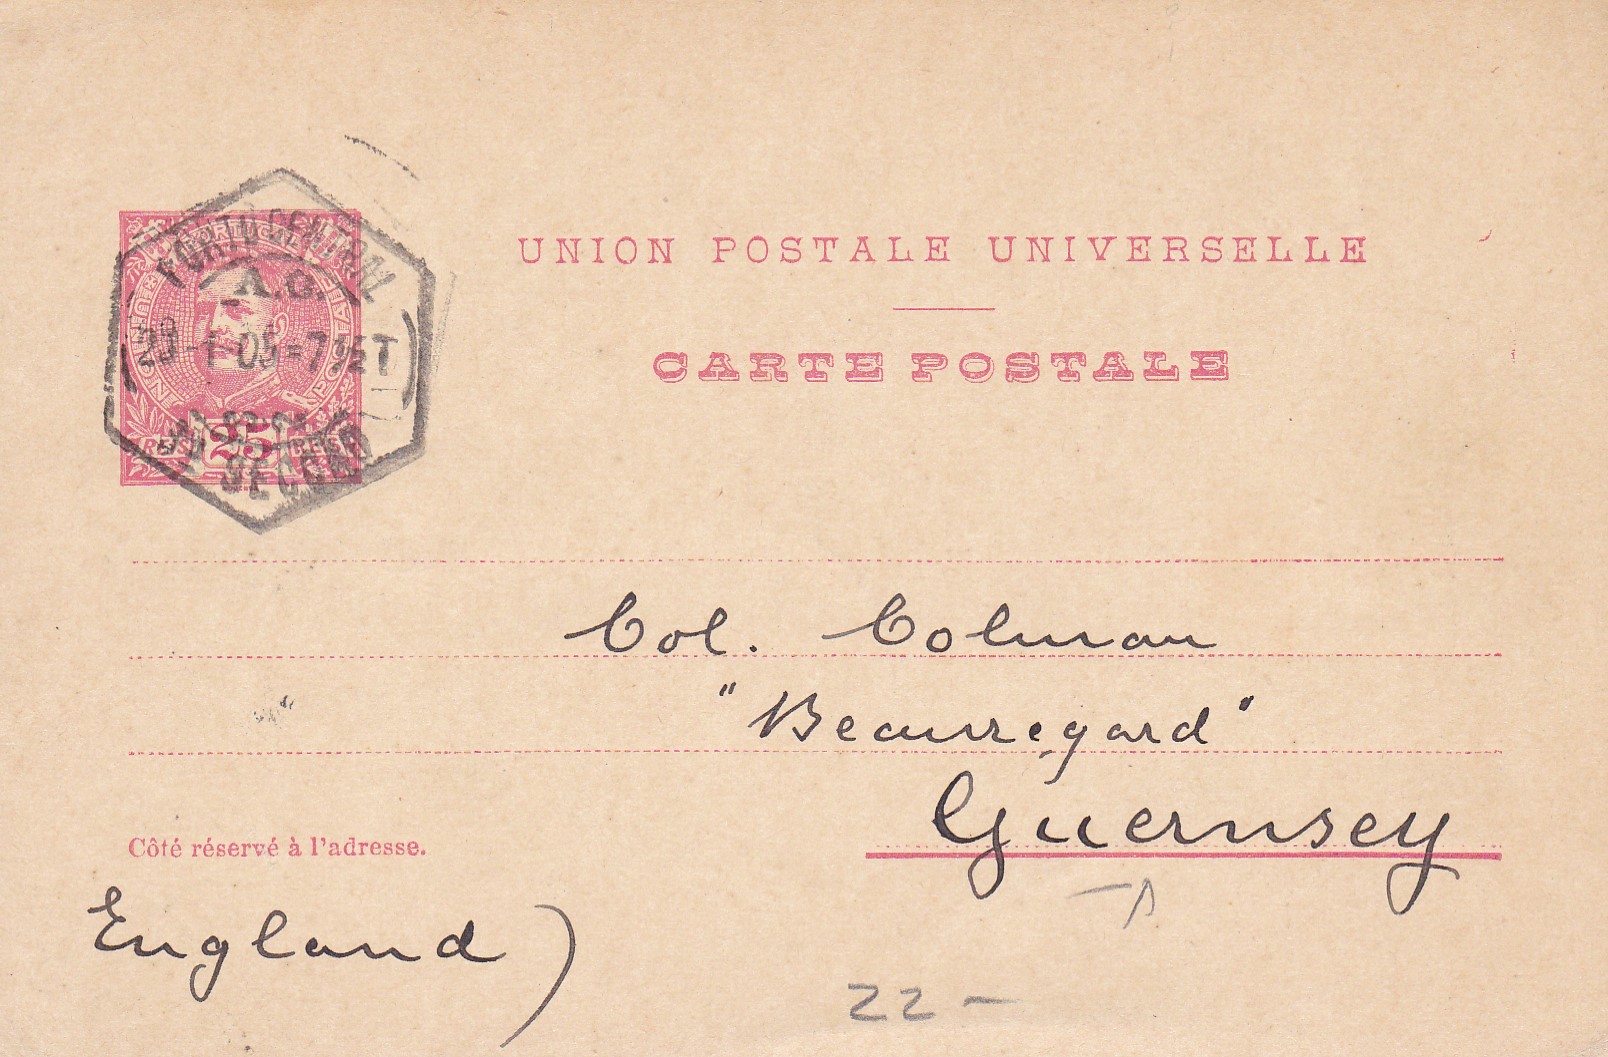 UNION POSTALE UNIVERSELLE
CARTE POSTALE
PORTUGAL
CENTRAL
A.C.
29-1-05=7½T
25
REIS
SECÇÃO
Col. Colman
"Beauregard"
Guernsey
Côté réservé à l'adresse.
England)
22 -